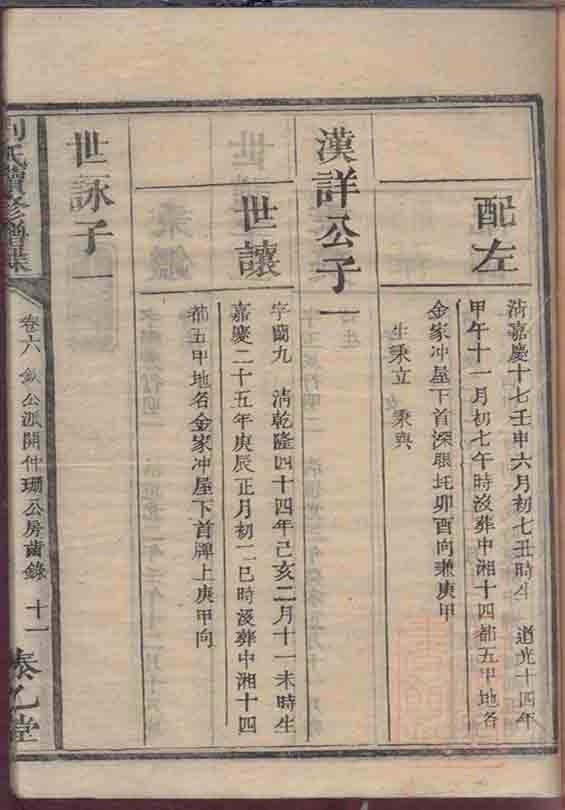 配左
清嘉慶十七壬申六月初七丑時生 道光十四年
甲午十一月初七午時沒葬中湘十四都五甲地名
金家冲屋下首深眼坵卯酉向兼庚甲
生秉立 秉典
漢詳公子一
世讓
字蘭九 清乾隆四十四年己亥二月十一未時生
嘉慶二十五年庚辰正月初一巳時沒葬中湘十四
都五甲地名金家冲屋下首牌上庚甲向
世詠子一
劉氏續修譜牒
卷六 欽公派開仲珊公房齒錄 十一
泰乙堂